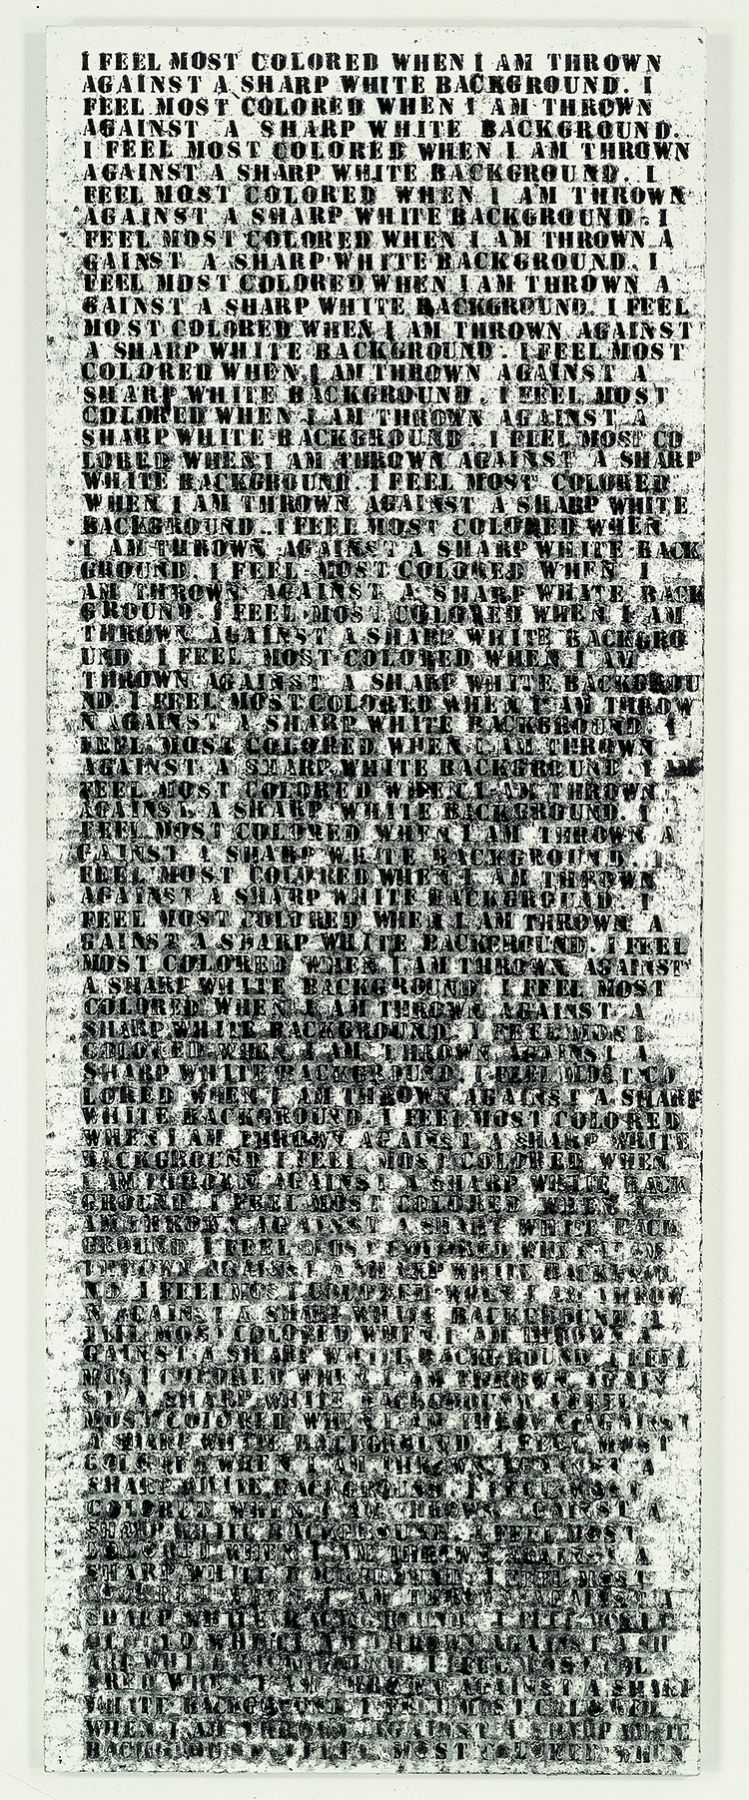 I FEEL MOST COLORED WHEN I AM THROWN
AGAINST A SHARP WHITE BACKGROUND. I
FEEL MOST COLORED WHEN I AM THROWN
AGAINST A SHARP WHITE BACKGROUND.
I FEEL MOST COLORED WHEN I AM THROWN
AGAINST A SHARP WHITE BACKGROUND. I
FEEL MOST COLORED WHEN I AM THROWN
AGAINST A SHARP WHITE BACKGROUND. I
FEEL MOST COLORED WHEN I AM THROWN A
GAINST A SHARP WHITE BACKGROUND. I
FEEL MOST COLORED WHEN I AM THROWN A
GAINST A SHARP WHITE BACKGROUND. I FEEL
MOST COLORED WHEN I AM THROWN AGAINST
A SHARP WHITE BACKGROUND. I FEEL MOST
COLORED WHEN I AM THROWN AGAINST A
SHARP WHITE BACKGROUND. I FEEL MOST
COLORED WHEN I AM THROWN AGAINST A
SHARP WHITE BACKGROUND. I FEEL MOST CO
LORED WHEN I AM THROWN AGAINST A SHARP
WHITE BACKGROUND. I FEEL MOST COLORED
WHEN I AM THROWN AGAINST A SHARP WHITE
BACKGROUND. I FEEL MOST COLORED WHEN
I AM THROWN AGAINST A SHARP WHITE BACK
GROUND. I FEEL MOST COLORED WHEN I
AM THROWN AGAINST A SHARP WHITE BACK
GROUND. I FEEL MOST COLORED WHEN I AM
THROWN AGAINST A SHARP WHITE BACKGRO
UND. I FEEL MOST COLORED WHEN I AM
THROWN AGAINST A SHARP WHITE BACKGROU
ND. I FEEL MOST COLORED WHEN I AM THROW
N AGAINST A SHARP WHITE BACKGROUND. I
FEEL MOST COLORED WHEN I AM THROWN
AGAINST A SHARP WHITE BACKGROUND. I AM
FEEL MOST COLORED WHEN I AM THROWN
AGAINST A SHARP WHITE BACKGROUND. I
FEEL MOST COLORED WHEN I AM THROWN A
GAINST A SHARP WHITE BACKGROUND. I
FEEL MOST COLORED WHEN I AM THROWN
AGAINST A SHARP WHITE BACKGROUND. I
FEEL MOST COLORED WHEN I AM THROWN A
GAINST A SHARP WHITE BACKGROUND. I FEEL
MOST COLORED WHEN I AM THROWN AGAINST
A SHARP WHITE BACKGROUND. I FEEL MOST
COLORED WHEN I AM THROWN AGAINST A
SHARP WHITE BACKGROUND. I FEEL MOST
COLORED WHEN I AM THROWN AGAINST A
SHARP WHITE BACKGROUND. I FEEL MOST CO
LORED WHEN I AM THROWN AGAINST A SHARP
WHITE BACKGROUND. I FEEL MOST COLORED
WHEN I AM THROWN AGAINST A SHARP WHITE
BACKGROUND I FEEL MOST COLORED WHEN
I AM THROWN AGAINST A SHARP WHITE BACK
GROUND. I FEEL MOST COLORED WHEN I
AM THROWN AGAINST A SHARP WHITE BACK
GROUND. I FEEL MOST COLORED WHEN I AM
THROWN AGAINST A SHARP WHITE BACKGROU
ND. I FEEL MOST COLORED WHEN I AM THROW
N AGAINST A SHARP WHITE BACKGROUND. I
FEEL MOST COLORED WHEN I AM THROWN A
GAINST A SHARP WHITE BACKGROUND. I FEEL
MOST COLORED WHEN I AM THROWN AGAIN
ST A SHARP WHITE BACKGROUND. I FEEL
MOST COLORED WHEN I AM THROWN AGAINST
A SHARP WHITE BACKGROUND. I FEEL MOST
COLORED WHEN I AM THROWN AGAINST A
SHARP WHITE BACKGROUND. I FEEL MOST
COLORED WHEN I AM THROWN AGAINST A
SHARP WHITE BACKGROUND. I FEEL MOST
COLORED WHEN I AM THROWN AGAINST A
SHARP WHITE BACKGROUND. I FEEL MOST
COLORED WHEN I AM THROWN AGAINST A
SHARP WHITE BACKGROUND. I FEEL MOST
WHEN I AM THROWN AGAINST A SH
ARP WHITE I FEEL MOST COL
ORED WHEN I AM THROWN AGAINST A SHARP
WHITE BACKGROUND. I FEEL MOST COLORED
WHEN I AM THROWN AGAINST A SHARP WHITE
BACKGROUND. I FEEL MOST COLORED WHEN